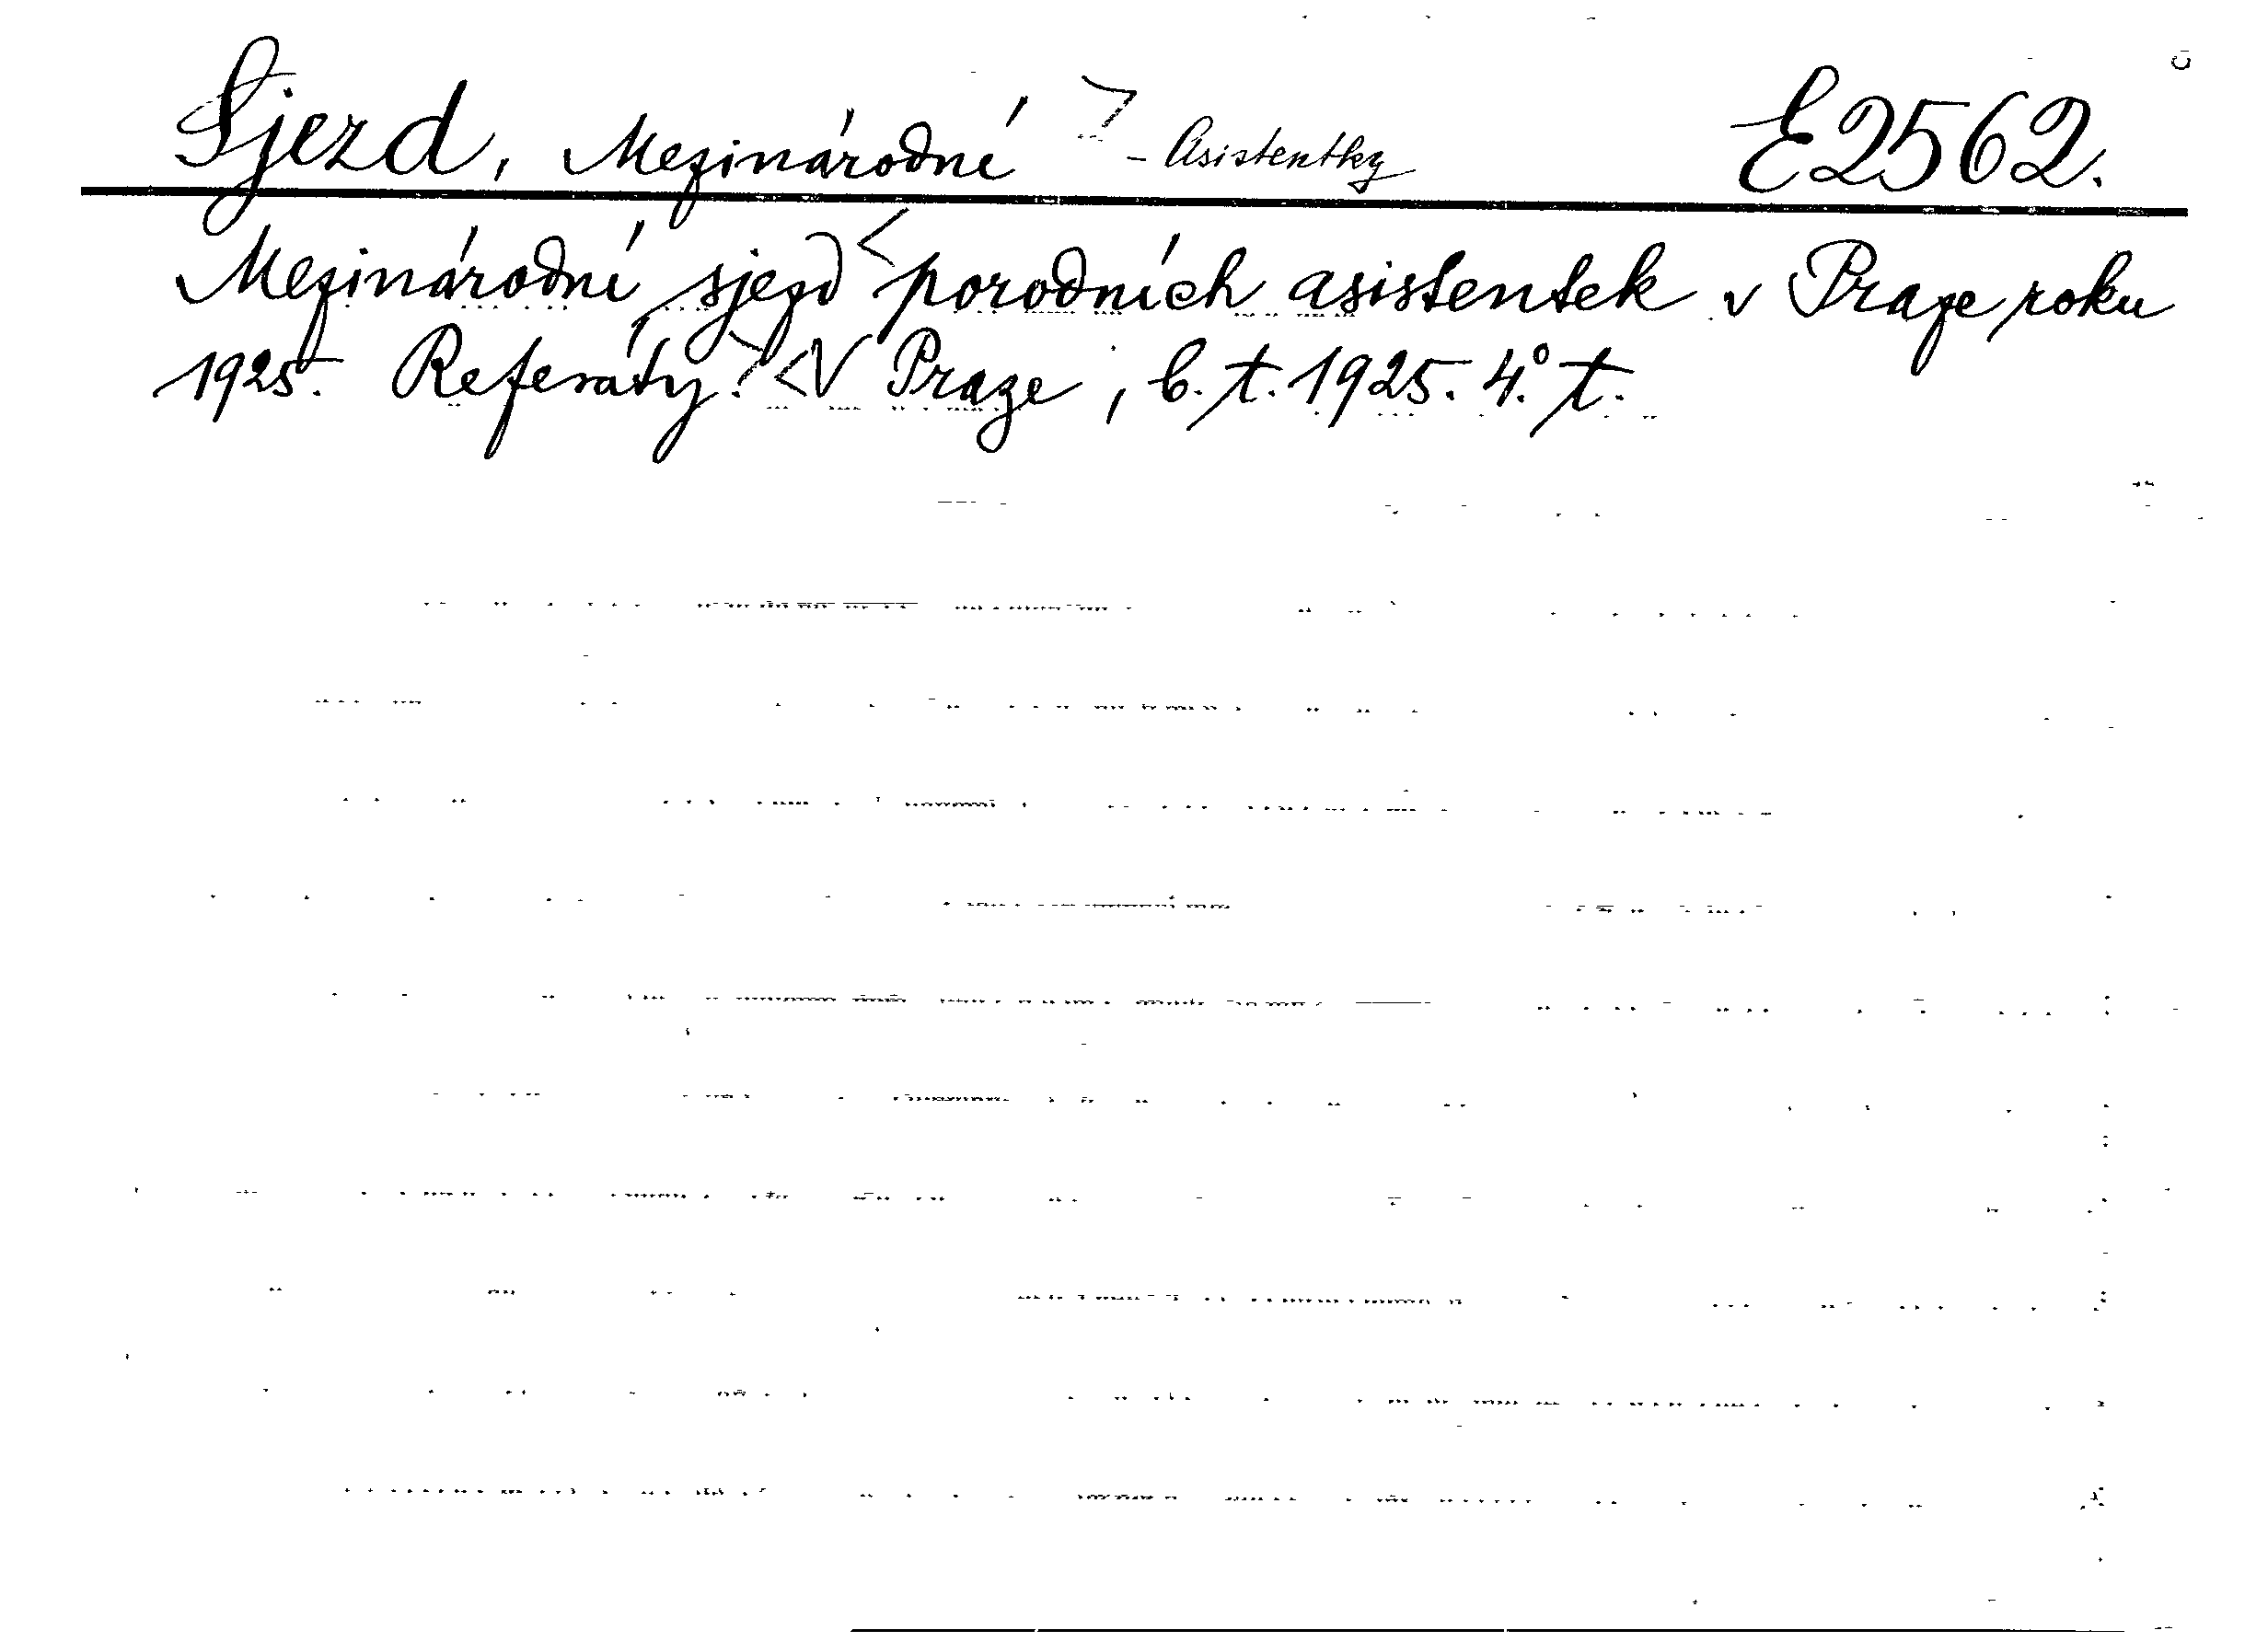 Sjezd, Mezinárodní - Asistentky E2562.
Mezinárodní sjezd porodních asistentek v Praze roku
1925. Referáty. V Praze, b. t. 1925. 4.° t.